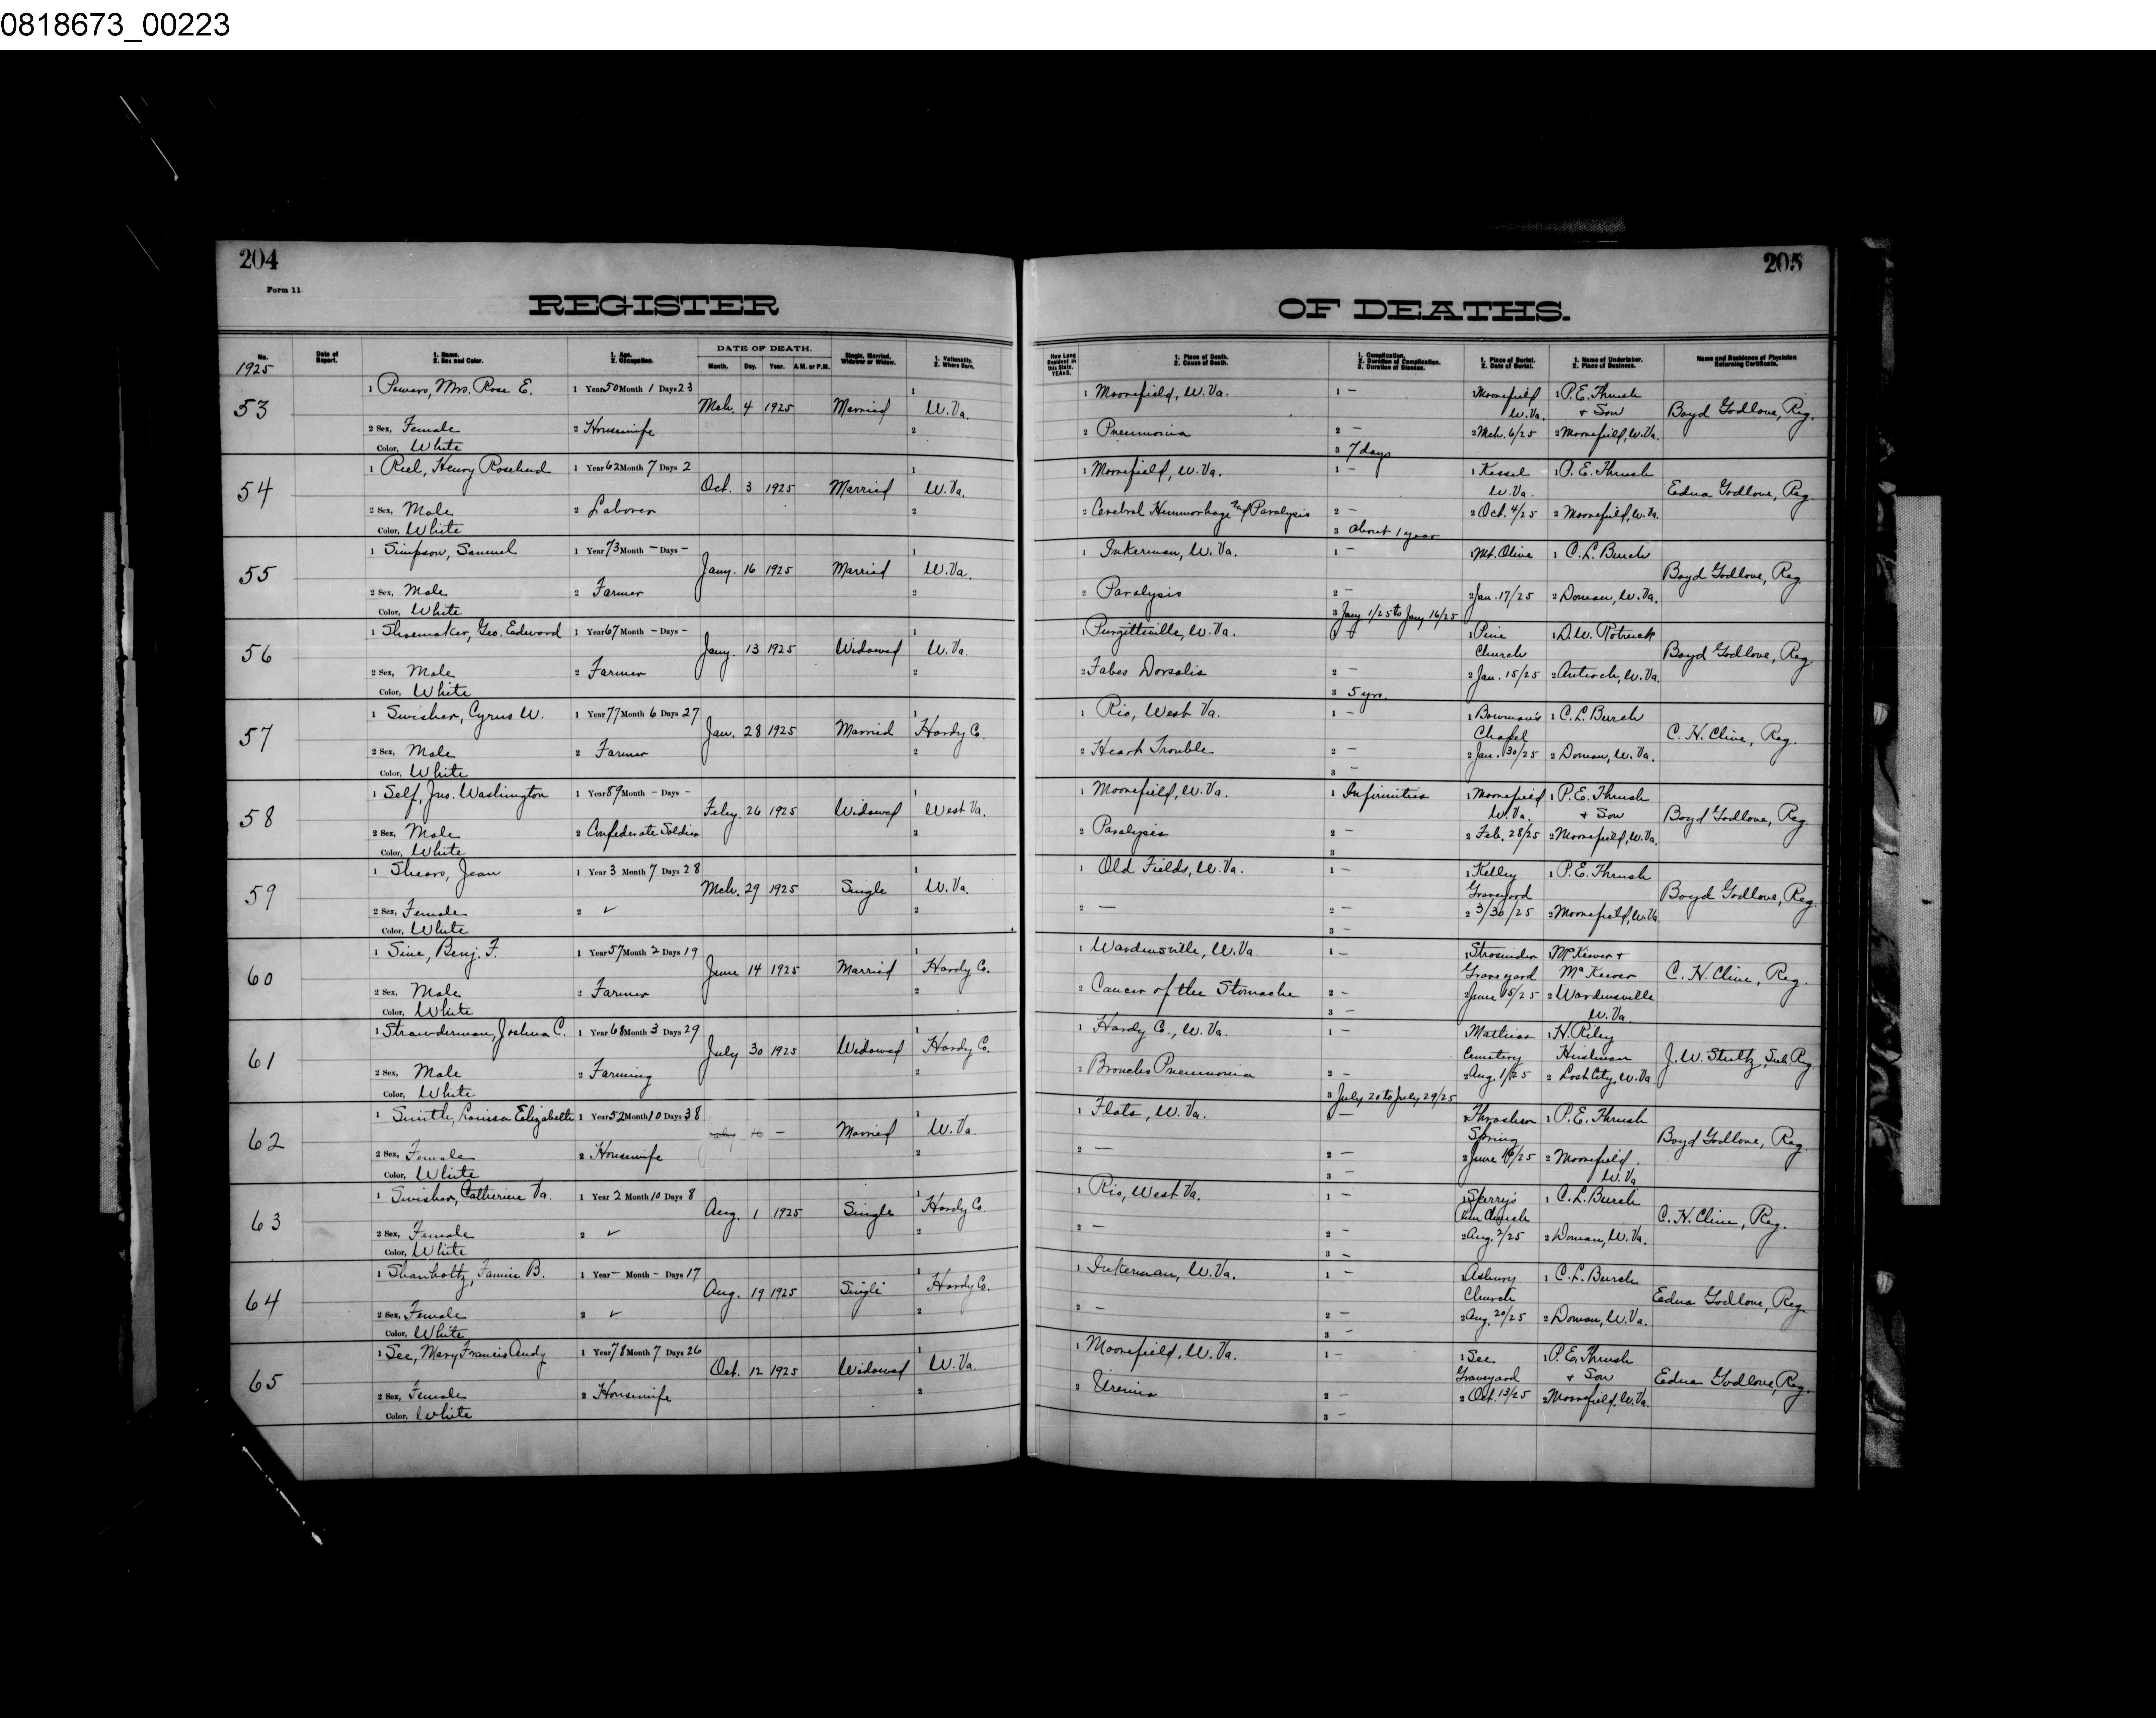 0818673_00223
204
Form 11
REGISTER
No. Date of Report. 1. Name. 2. Sex and Color. 1. Age. 2. Occupation. DATE OF DEATH. Month. Day. Year. A.M. or P.M. Single, Married, Widower or Widow. 1. Nationality. 2. Where Born.
1925
53 1 Powers, Mrs. Rose E. 1 Year 50 Month 1 Days 23 Mch. 4 1925 Married 1 W. Va.
2 Sex, Female 2 Housewife 2
Color, White
54 1 Riel, Henry Rosebud 1 Year 62 Month 7 Days 2 Oct. 3 1925 Married 1 W. Va.
2 Sex, Male 2 Laborer 2
Color, White
55 1 Simpson, Samuel 1 Year 73 Month - Days - Jany. 16 1925 Married 1 W. Va.
2 Sex, Male 2 Farmer 2
Color, White
56 1 Shoemaker, Geo. Edward 1 Year 67 Month - Days - Jany. 13 1925 Widowed 1 W. Va.
2 Sex, Male 2 Farmer 2
Color, White
57 1 Swisher, Cyrus W. 1 Year 77 Month 6 Days 27 Jan. 28 1925 Married 1 Hardy Co.
2 Sex, Male 2 Farmer 2
Color, White
58 1 Self, Jno. Washington 1 Year 89 Month - Days - Feby. 26 1925 Widowed 1 West Va.
2 Sex, Male 2 Confederate Soldier 2
Color, White
59 1 Shears, Jean 1 Year 3 Month 7 Days 28 Mch. 29 1925 Single 1 W. Va.
2 Sex, Female 2 ✓ 2
Color, White
60 1 Sine, Benj. F. 1 Year 57 Month 2 Days 19 June 14 1925 Married 1 Hardy Co.
2 Sex, Male 2 Farmer 2
Color, White
61 1 Strawderman, Joshua C. 1 Year 68 Month 3 Days 29 July 30 1925 Widowed 1 Hardy Co.
2 Sex, Male 2 Farming 2
Color, White
62 1 Smith, Louisa Elizabeth 1 Year 52 Month 10 Days 38 - Married 1 W. Va.
2 Sex, Female 2 Housewife 2
Color, White
63 1 Swisher, Catherine Va. 1 Year 2 Month 10 Days 8 Aug. 1 1925 Single 1 Hardy Co.
2 Sex, Female 2 ✓ 2
Color, White
64 1 Shanholtz, Fannie B. 1 Year - Month - Days 17 Aug. 19 1925 Single 1 Hardy Co.
2 Sex, Female 2 ✓ 2
Color, White
65 1 See, Mary Francis Andy 1 Year 78 Month 7 Days 26 Oct. 12 1925 Widowed 1 W. Va.
2 Sex, Female 2 Housewife 2
Color, White
205
OF DEATHS.
How Long Resident in this State. YEARS. 1. Place of Death. 2. Cause of Death. 1. Complication. 2. Duration of Complication. 3. Duration of Disease. 1. Place of Burial. 2. Date of Burial. 1. Name of Undertaker. 2. Place of Business. Name and Residence of Physician Returning Certificate.
1 Moorefield, W. Va. 1 - 1 Moorefield W. Va. 1 P. E. Thrush & Son Boyd Godlove, Reg.
2 Pneumonia 2 - 2 Mch. 6/25 2 Moorefield, W. Va.
3 7 days
1 Moorefield, W. Va. 1 - 1 Kessel W. Va. 1 P. E. Thrush Edna Godlove, Reg.
2 Cerebral Hemmorhage and Paralysis 2 - 2 Oct. 4/25 2 Moorefield, W. Va.
3 About 1 year
1 Inkerman, W. Va. 1 - 1 Mt. Olive 1 C. L. Burch Boyd Godlove, Reg.
2 Paralysis 2 - 2 Jan. 17/25 2 Doman, W. Va.
3 Jany 1/25 to Jany 16/25
1 Purgittsville, W. Va. 1 - 1 Pine Church 1 D. W. Rotruck Boyd Godlove, Reg.
2 Fabes Dorsalis 2 - 2 Jan. 15/25 2 Antioch, W. Va.
3 5 yrs.
1 Rio, West Va. 1 - 1 Bowman's Chapel 1 C. L. Burch C. H. Cline, Reg.
2 Heart Trouble 2 - 2 Jan. 30/25 2 Doman, W. Va.
3 -
1 Moorefield, W. Va. 1 Infirmities 1 Moorefield W. Va. 1 P. E. Thrush & Son Boyd Godlove, Reg.
2 Paralysis 2 - 2 Feb. 28/25 2 Moorefield, W. Va.
3
1 Old Fields, W. Va. 1 - 1 Kelley Graveyard 1 P. E. Thrush Boyd Godlove, Reg.
2 - 2 - 2 3/30/25 2 Moorefield, W. Va.
3 -
1 Wardensville, W. Va. 1 - 1 Strosnider Graveyard 1 McKeever & McKeever C. H. Cline, Reg.
2 Cancer of the Stomache 2 - 2 June 15/25 2 Wardensville W. Va.
3 -
1 Hardy Co., W. Va. 1 - 1 Mathias Cemetery 1 H. Riley Hushman J. W. Stultz, Sub Reg
2 Broncho Pneumonia 2 - 2 Aug. 1/25 2 Lost City, W. Va
3 July 20 to July 29/25
1 Flats, W. Va. 1 - 1 Thrasher Spring 1 P. E. Thrush Boyd Godlove, Reg.
2 - 2 - 2 June 16/25 2 Moorefield. W. Va
3 -
1 Rio, West Va. 1 - 1 Sperry's Run Church 1 C. L. Burch C. H. Cline, Reg.
2 - 2 - 2 Aug. 2/25 2 Doman, W. Va.
3 -
1 Inkerman, W. Va. 1 - 1 Asbury Church 1 C. L. Burch Edna Godlove, Reg.
2 - 2 - 2 Aug. 20/25 2 Doman, W. Va.
3 -
1 Moorefield, W. Va. 1 - 1 See Graveyard 1 P. E. Thrush & Son Edna Godlove, Reg.
2 Uremia 2 - 2 Oct. 13/25 2 Moorefield, W. Va.
3 -